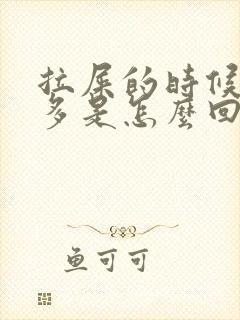 拉屎的時候
多是怎麼回
鱼可可